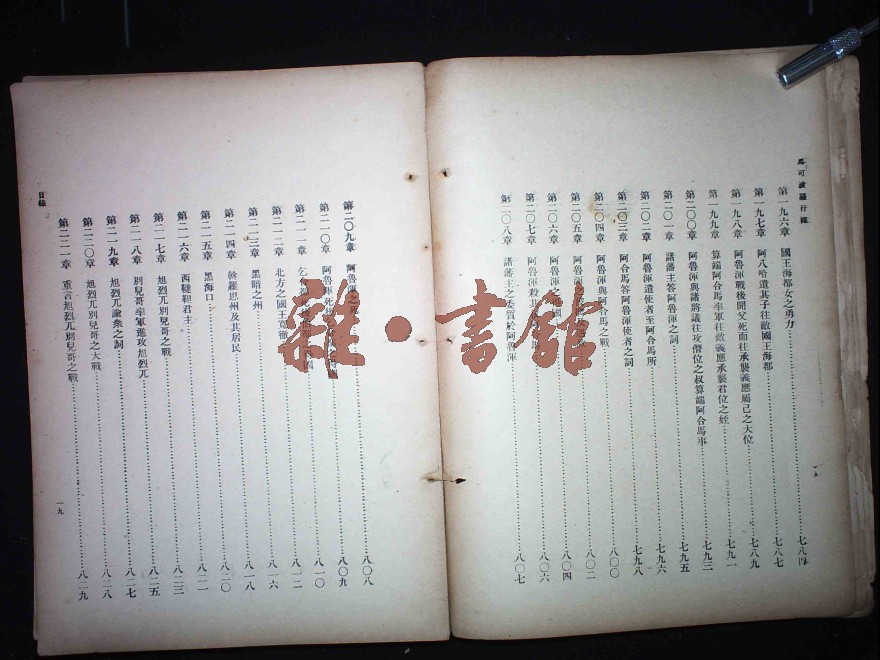 馬可波羅行紀
第一九六章 國王海都女之勇力 七八四
第一九七章 阿八哈遣其子往敵國王海都 七八七
第一九八章 阿魯渾戰後聞父死而往承襲義應屬己之大位 七八九
第一九九章 算端阿合馬率軍往敵義應承襲君位之姪 七九一
第二〇〇章 阿魯渾與諸將議往攻僭位之叔算端阿合馬事 七九三
第二〇一章 諸藩主答阿魯渾之詞 七九五
第二〇二章 阿魯渾遣使者至阿合馬所 七九六
第二〇三章 阿合馬答阿魯渾使者之詞 七九八
第二〇四章 阿魯渾與阿合馬之戰 八〇〇
第二〇五章 阿魯渾 八〇二
第二〇六章 阿魯渾之 國 八〇四
第二〇七章 阿魯渾殺其 八〇六
第二〇八章 諸藩主之委質於阿魯渾 八〇七
第二〇九章 阿魯渾之死 八〇八
第二一〇章 阿魯渾死 八〇九
第二一一章 八一〇
第二一二章 北方之國王寬徹 八一二
第二一三章 黑暗之州 八一六
第二一四章 斡羅思州及其居民 八一八
第二一五章 黑海口 八二〇
第二一六章 西韃靼君主 八二一
第二一七章 旭烈兀別兒哥之戰 八二三
第二一八章 別兒哥率軍進攻旭烈兀 八二五
第二一九章 旭烈兀諭衆之詞 八二七
第二二〇章 旭烈兀別兒哥之大戰 八二八
第二二一章 重言旭烈兀別兒哥之戰 八二九
目錄
一九
雜·書館